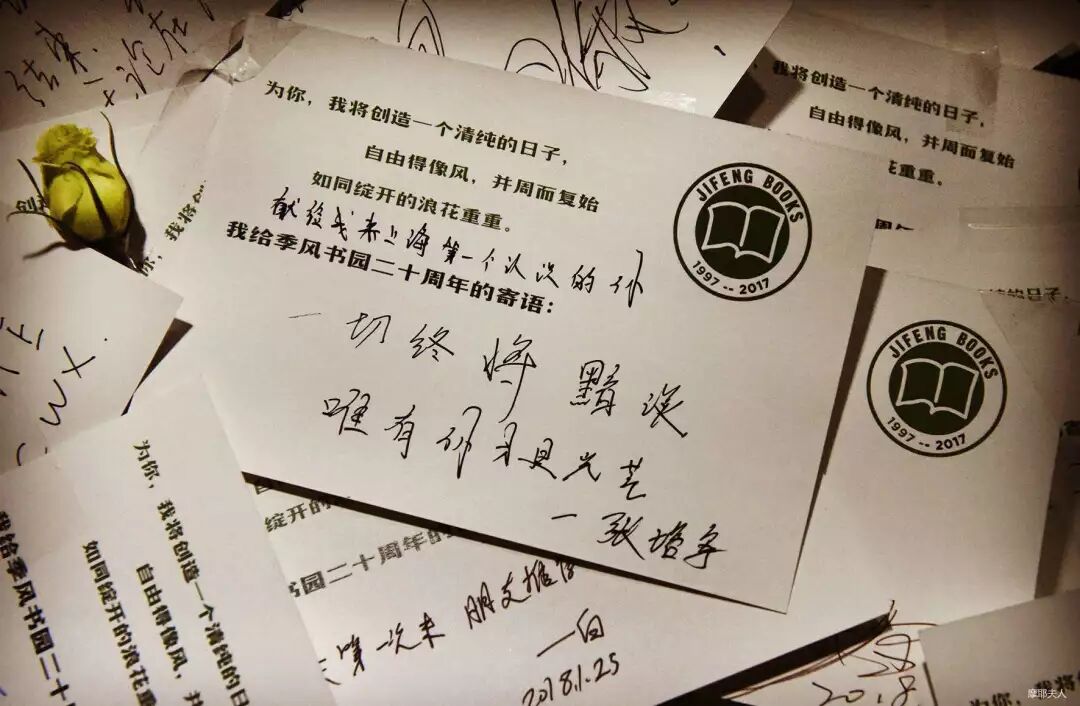 为你，我将创造一个清纯的日子，
自由得像风，并周而复始
如同绽开的浪花重重。
献给我来上海第一个认识的你
我给季风书园二十周年的寄语：
一切终将黯淡
唯有你才是光芒
JIFENG BOOKS
1997 -- 2017
我将创造一个清纯的日子，
自由得像风，并周而复始
重重。
的日子，
JIFENG BOOKS
1997 -- 2017
结束.
我将
为你，我将创造一个清纯的日
自由得像风，并
如同绽开的浪花
我给季风书园二十
绽开的
书园二十周年的
第一次来 朋友推
一白
2018.1.25
2018
为你，我将
摩耶夫人